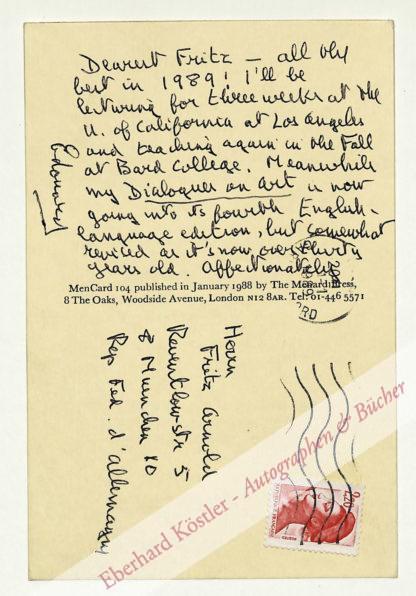 Dearest Fritz — all my
best in 1989! I'll be
lecturing for three weeks at the
U. of California at Los Angeles
and teaching again in the Fall
at Bard College. Meanwhile
my Dialogues on Art is now
going into its fourth English-
language edition, but somewhat
revised as it's now over thirty
years old. Affectionately
Edouard
MenCard 104 published in January 1988 by The Menard Press,
8 The Oaks, Woodside Avenue, London N12 8AR. Tel: 01-446 5571
Herrn
Fritz Arnold
Reventlowstr 5
8 Muenchen 80
Rep Fed. d'Allemagne
2,20
Eberhard Köstler - Autographen & Bücher